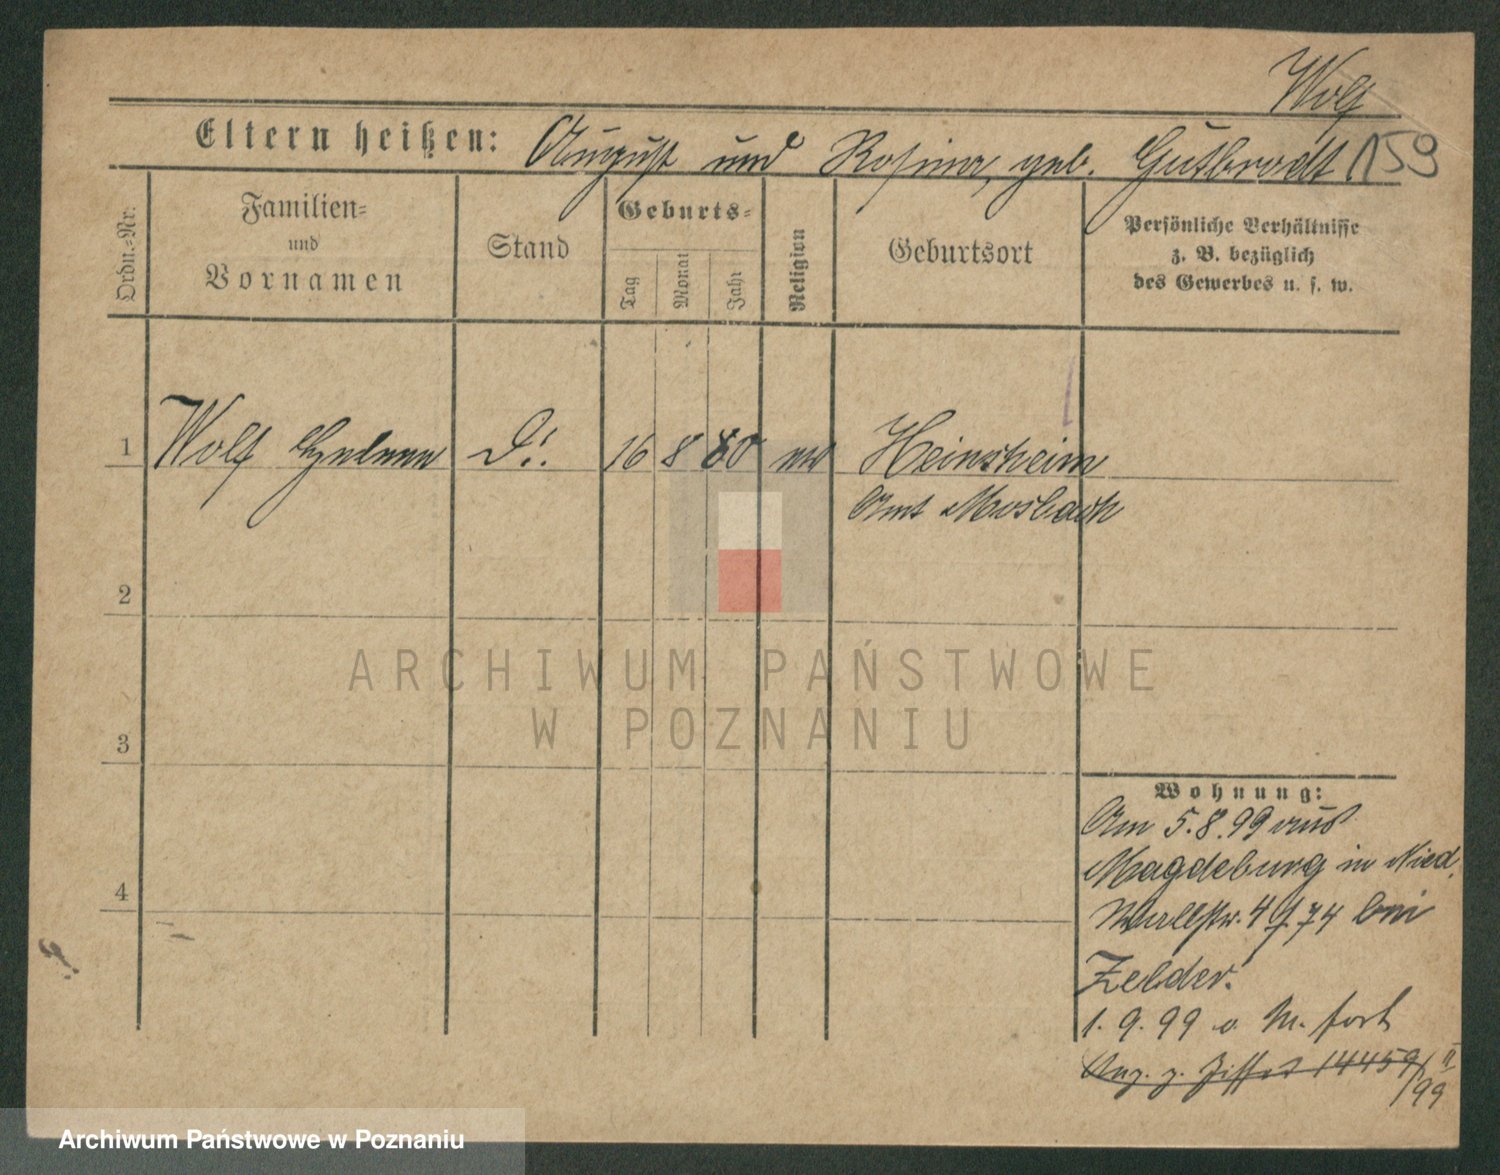 Wolf
Eltern heißen: August und Rosina, geb. Gutbrodt. 159
Ordn.-Nr.
Familien-
und
Vornamen
Stand
Geburts-
Tag
Monat
Jahr
Religion
Geburtsort
Persönliche Verhältnisse
z. B. bezüglich
des Gewerbes u. s. w.
1 Wolf Helene D. 16 8 80 ev Heinsheim
Amt Mosbach
2
3
4
ARCHIWUM PAŃSTWOWE
W POZNANIU
Wohnung:
Am 5.8.99 aus
Magdeburg in Nied.
Wallstr. 4 74 bei
Zelder.
1.9.99 o. M. fort
Anz. z. 14459/II
99
Archiwum Państwowe w Poznaniu